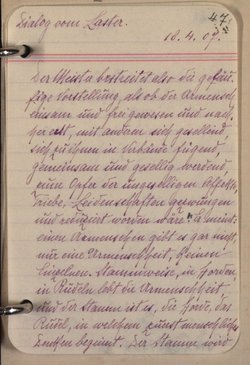 Dialog vom Laster.
47
18.4.07.
Der Westa bestreitet also die geläu-
fige Vorstellung, als ob der Armensch
einsam und frei gewesen und nach-
her erst, mit andern sich gesellend,
sich zu ihnen in Verbände fügend,
gemeinsam und gesellig werdend,
zum Opfer der ungeselligen Affekte,
Triebe, Leidenschaften gezwungen
und reduziert worden wäre.
einen Armenschen gibt es gar nicht,
nur eine Armenschheit, keinen
Einzelnen. Stammweise, in Horden
in Rudeln lebt die Armenschheit
und der Stamm ist es, die Horde, das
Rudel, in welchem zuerst menschliches
Denken beginnt. Der Stamm wird